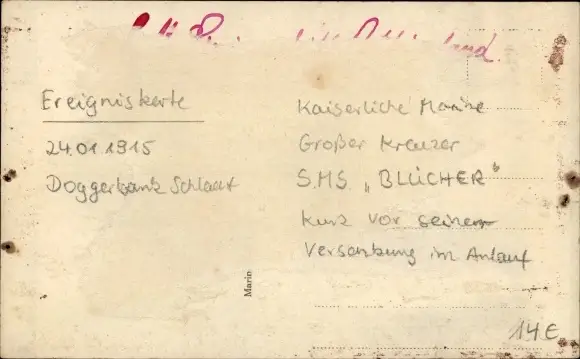 Ereigniskarte
24.01.1915
Doggerbank Schlacht
Kaiserliche Marine
Großer Kreuzer
S.M.S. „BLÜCHER"
kurz vor seiner
Versenkung im Anlauf
Marin
14E